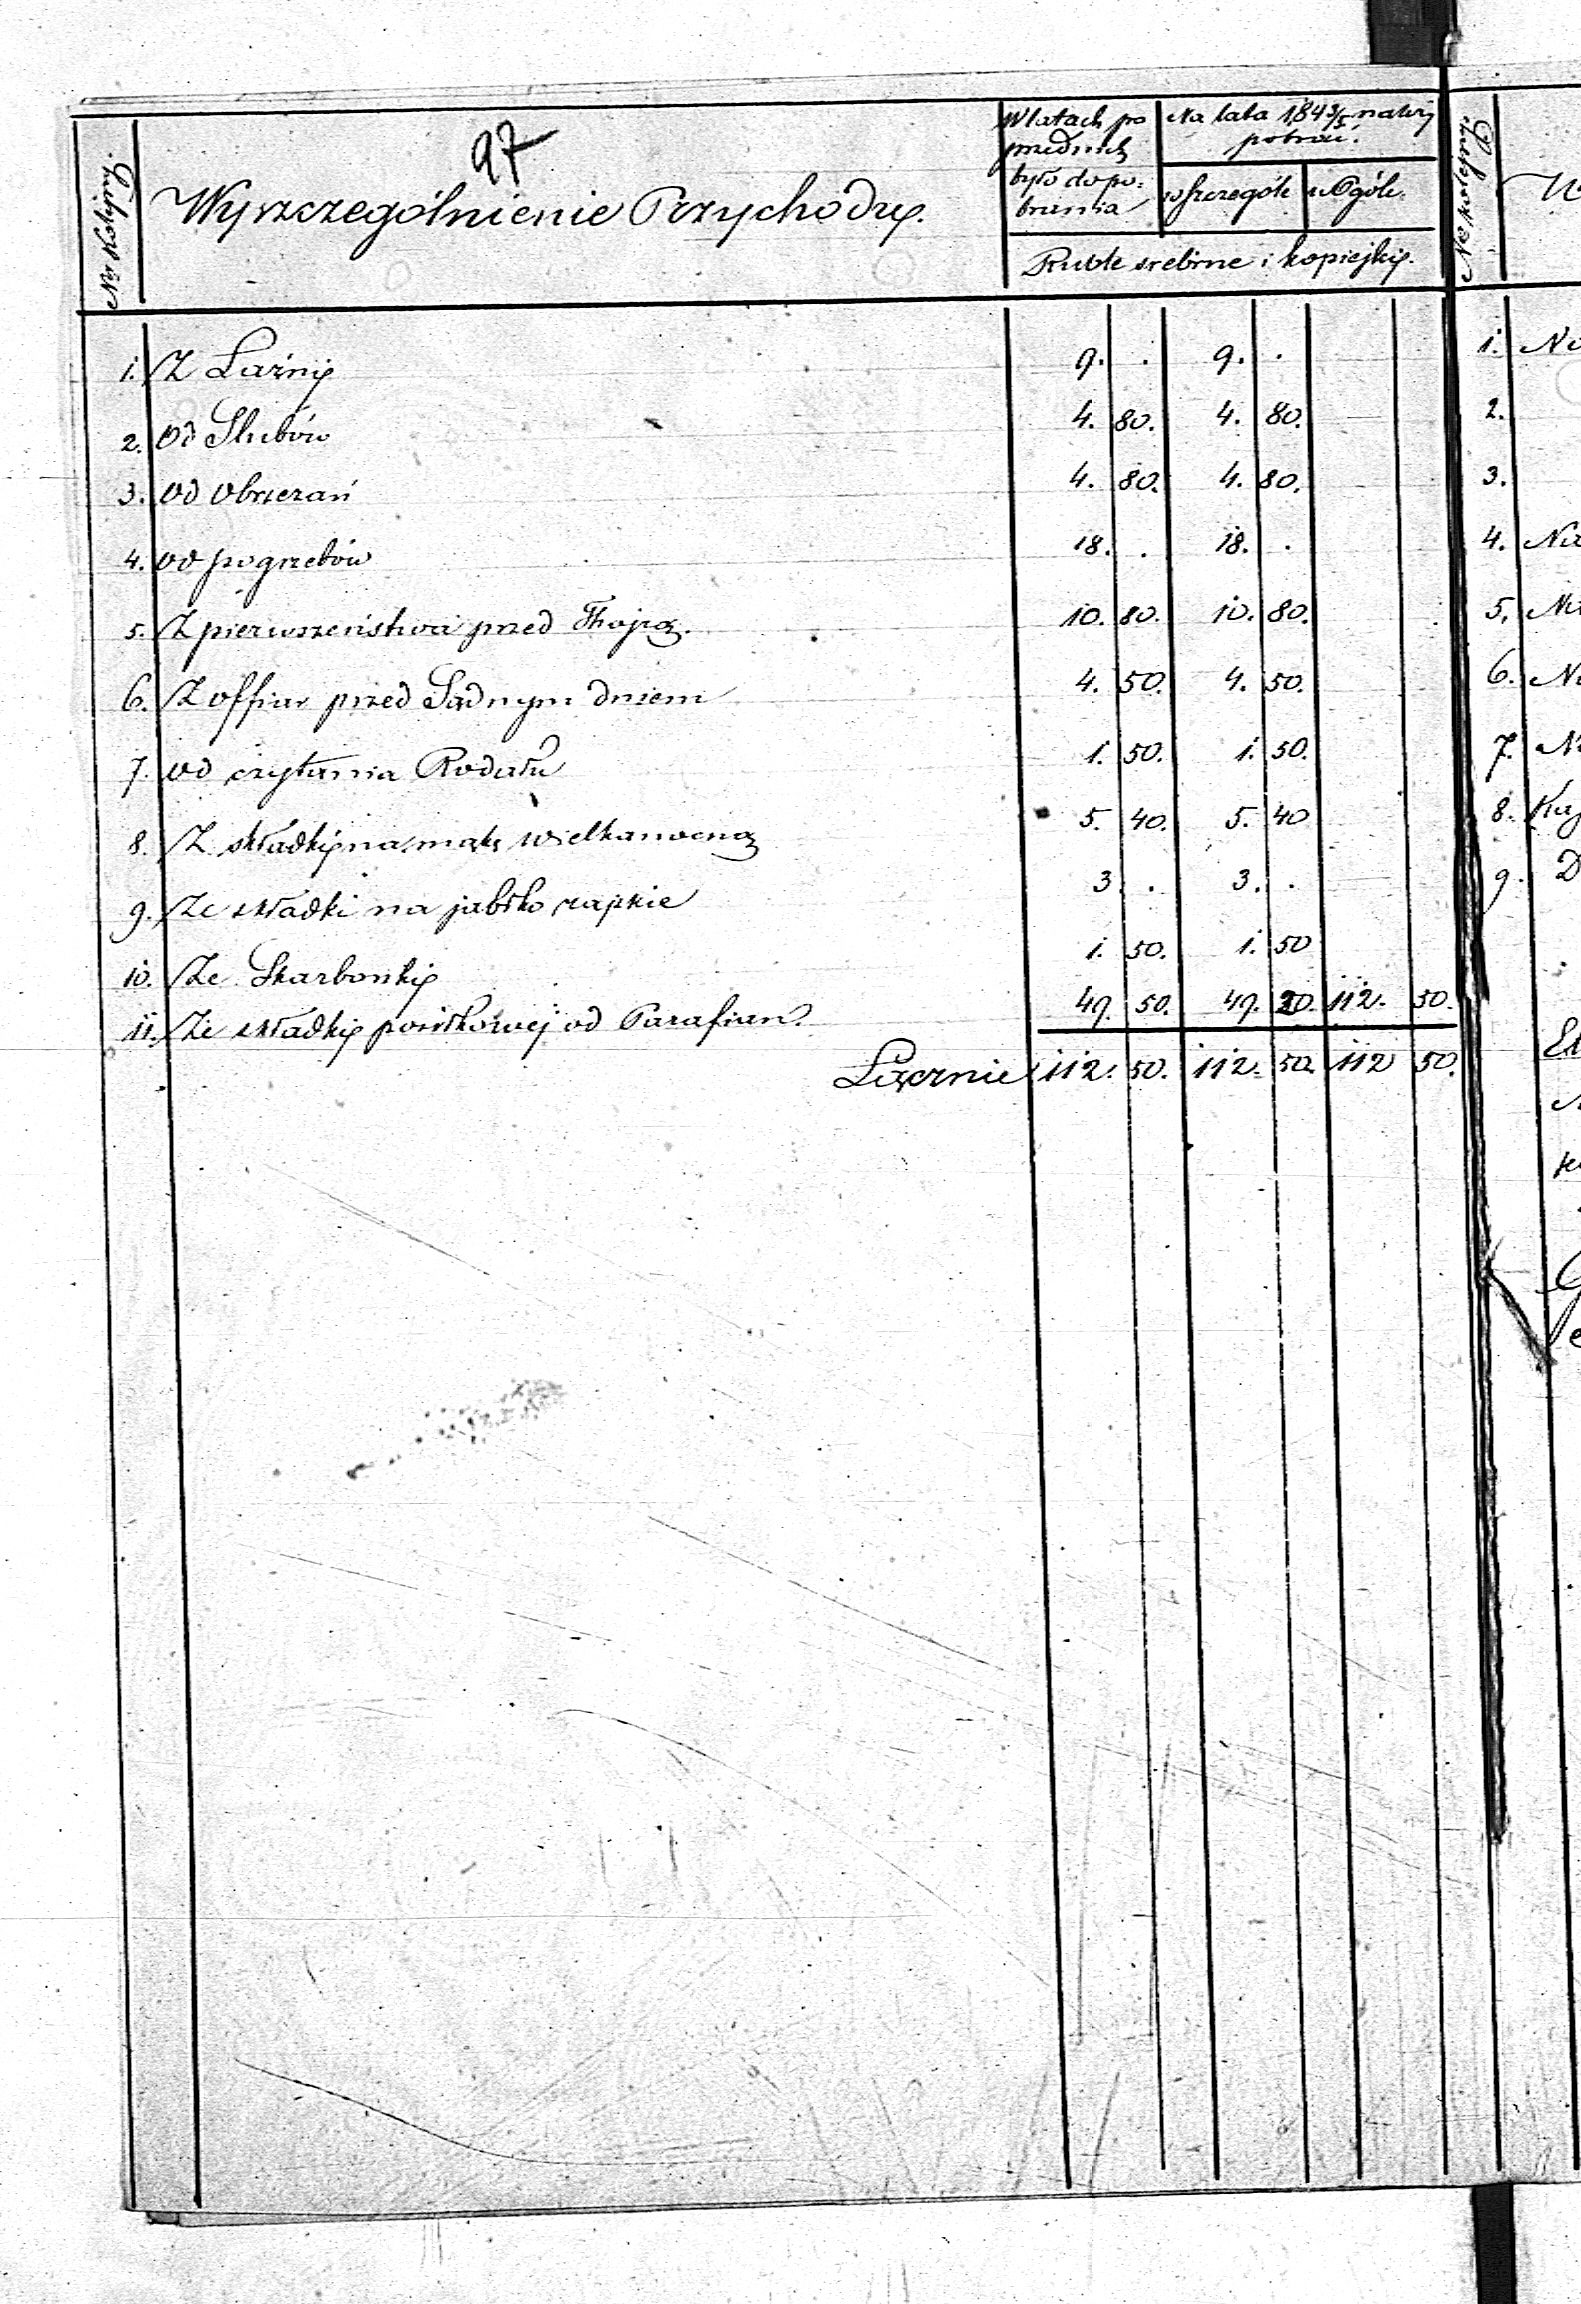 97
No kolejny.
Wyszczególnienie Przychodu.
W latach po
przednich
było do po:
brania
Na lata 1843/5 należy
pobrać.
w szczególe
w Ogóle.
Ruble srebrne i kopiejki.
1. Z Łaźni 9. . 9. .
2. Od Slubów 4. 80. 4. 80.
3. Od Obrzezań 4. 80. 4. 80.
4. od pogrzebów 18. . 18. .
5. Z pierwszeństwa przed Thorą. 10. 80. 10. 80.
6. Z offiar przed Sądnym dniem 4. 50. 4. 50.
7. od czytania Rodału 1. 50. 1. 50.
8. Z składki na mąkę wielkanocną 5. 40. 5. 40
9. Ze składki na jabłko rajskie 3. . 3. .
10. Ze Skarbonki 1. 50. 1. 50
11. Ze składki posiłkowej od Parafian. 49. 50. 49. 20. 112. 50.
Łącznie 112. 50. 112. 50. 112 50.
No kolejny.
1.
2.
3.
4.
5.
6.
7.
8.
9.